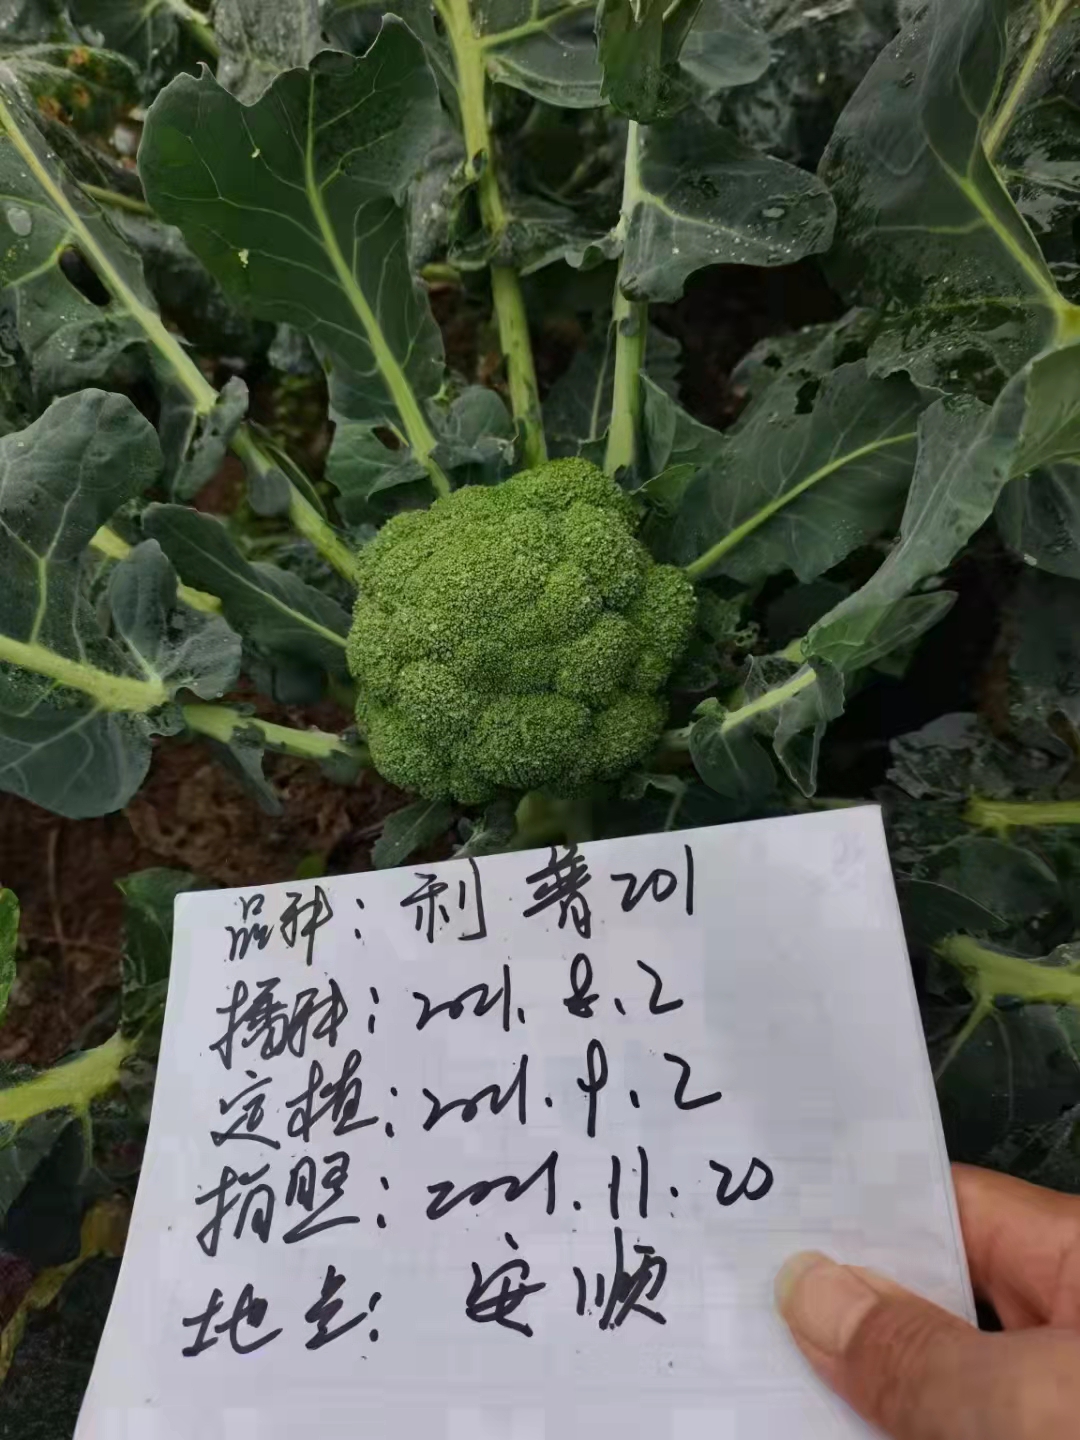 品种：利普201
播种：2021.8.2
定植：2021.9.2
拍照：2021.11.20
地点：安顺